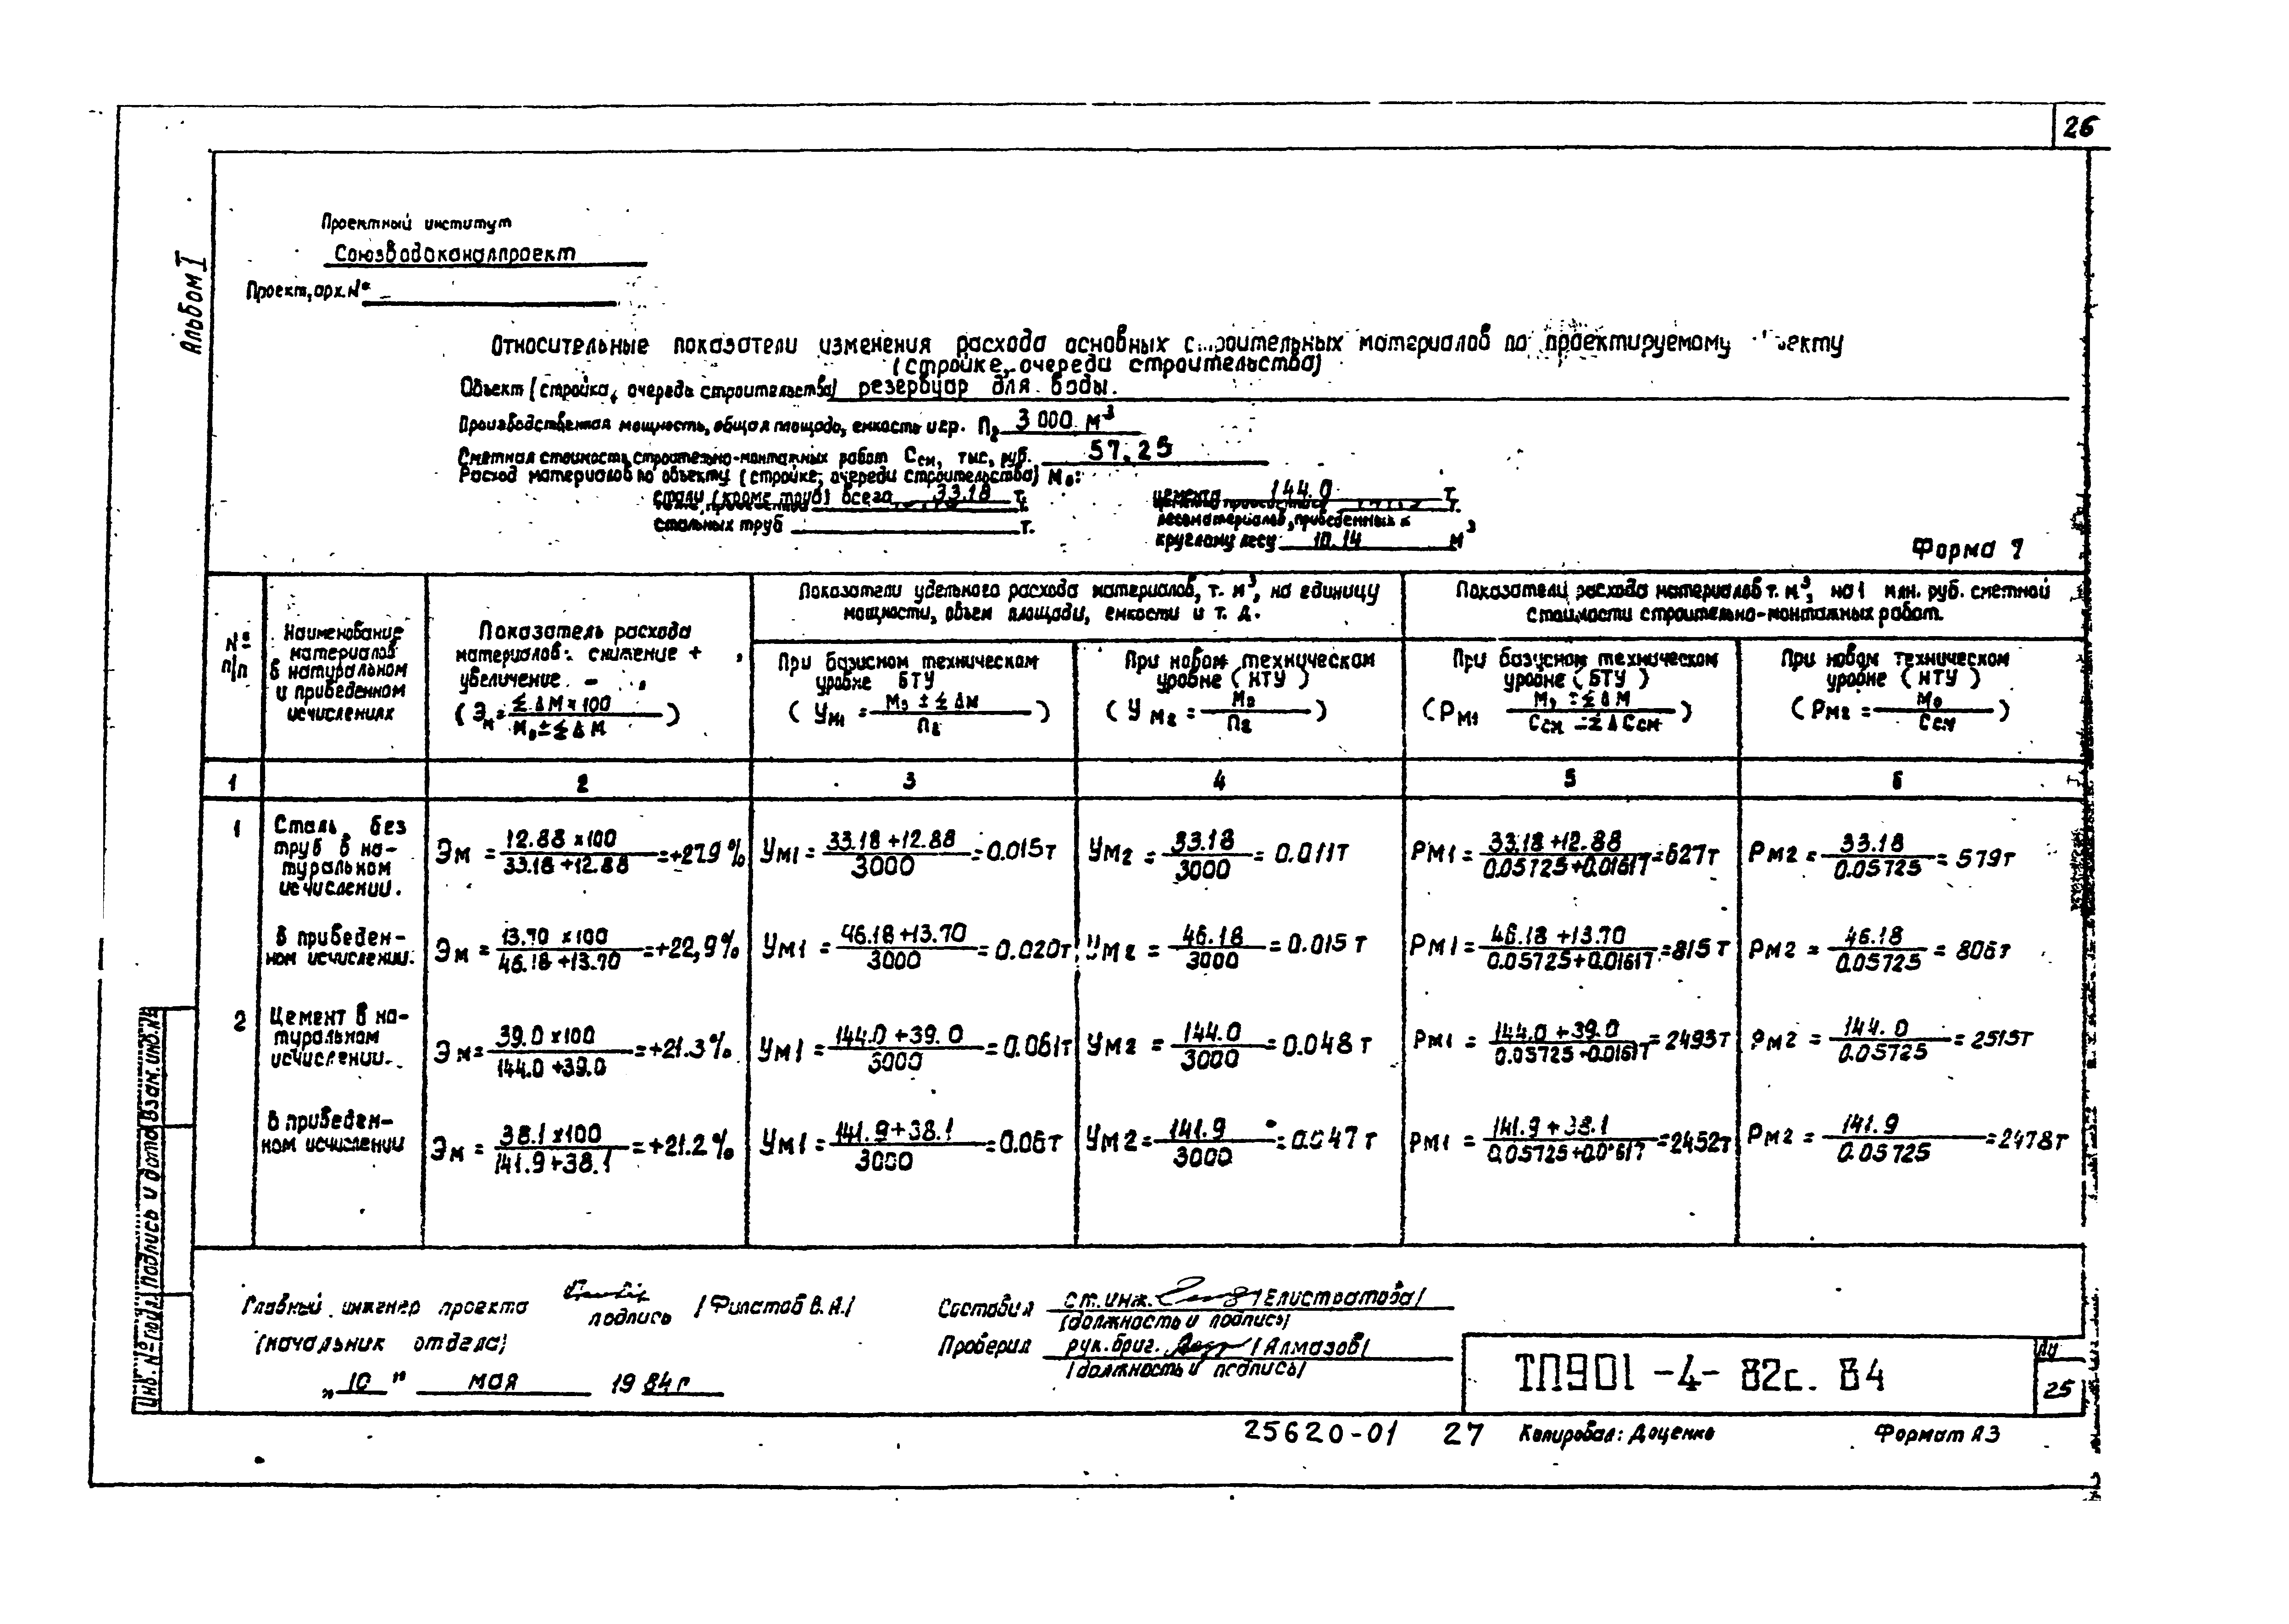 26
Альбом I
Проектный институт
Союзводоканалпроект
Проект, арх. №
Относительные показатели изменения расхода основных строительных материалов по проектируемому
(стройке, очереди строительства)
Объект (стройка, очередь строительства) резервуар для воды.
Производственная мощность, общая площадь, емкость и др. П₂ 3 000 м³
Сметная стоимость строительно-монтажных работ Ссм, тыс, руб. 57.25
Расход материалов по объекту (стройке, очереди строительства) М₀:
стали (кроме труб) всего 33.18 т. цемента 144.0 т
стальных труб т. лесоматериалов, приведенных к
круглому лесу 10.14 м³
Форма 7
№ п/п
Наименование материалов в натуральном и приведенном исчислениях
Показатель расхода материалов: снижение + увеличение –
( Эм = Σ Δ М × 100 / М₀ ± Σ Δ М )
Показатели удельного расхода материалов, т. м³, на единицу мощности, объем площади, емкости и т. д.
При базисном техническом уровне БТУ
( Ум1 = М₀ ± Σ Δм / П₂ )
При новом техническом уровне ( НТУ )
( Ум2 = М₀ / П₂ )
Показатели расхода материалов т. м³, на 1 млн. руб. сметной стоимости строительно-монтажных работ.
При базисном техническом уровне ( БТУ )
( Рм1 М₀ ± Σ Δ М / Ссм ± Σ Δ Ссм )
При новом техническом уровне ( НТУ )
( Рм2 = М₀ / Ссм )
1 2 3 4 5 6
1 Сталь, без труб в натуральном исчислении. Эм = 12.88 × 100 / 33.18 + 12.88 = +27.9 % Ум1 = 33.18 + 12.88 / 3000 = 0.015т Ум2 = 33.18 / 3000 = 0.011т Рм1 = 33.18 + 12.88 / 0.05725 + 0.01617 = 627т Рм2 = 33.18 / 0.05725 = 579т
в приведенном исчислении. Эм = 13.70 × 100 / 46.18 + 13.70 = +22,9% Ум1 = 46.18 + 13.70 / 3000 = 0.020т Ум2 = 46.18 / 3000 = 0.015 т Рм1 = 46.18 + 13.70 / 0.05725 + 0.01617 = 815 т Рм2 = 46.18 / 0.05725 = 806т
2 Цемент в натуральном исчислении. Эм = 39.0 × 100 / 144.0 + 39.0 = +21.3% Ум1 = 144.0 + 39.0 / 3000 = 0.061т Ум2 = 144.0 / 3000 = 0.048 т Рм1 = 144.0 + 39.0 / 0.05725 + 0.01617 = 2493т Рм2 = 144.0 / 0.05725 = 2515т
в приведенном исчислении Эм = 38.1 × 100 / 141.9 + 38.1 = +21.2 % Ум1 = 141.9 + 38.1 / 3000 = 0.06т Ум2 = 141.9 / 3000 = 0.047 т Рм1 = 141.9 + 38.1 / 0.05725 + 0.01617 = 2452т Рм2 = 141.9 / 0.05725 = 2478т
Главный инженер проекта подпись / Филатов В. А./
(начальник отдела)
„ 10 " мая 19 84 г
Составил ст. инж. /Елистратова/
(должность и подпись)
Проверил рук. бриг. /Алмазов/
(должность и подпись)
Инв. № подл. Подпись и дата Взам. инв. №
ТП901 -4- 82с. 84
25
25620-01 27 Копировал: Доценко Формат А3